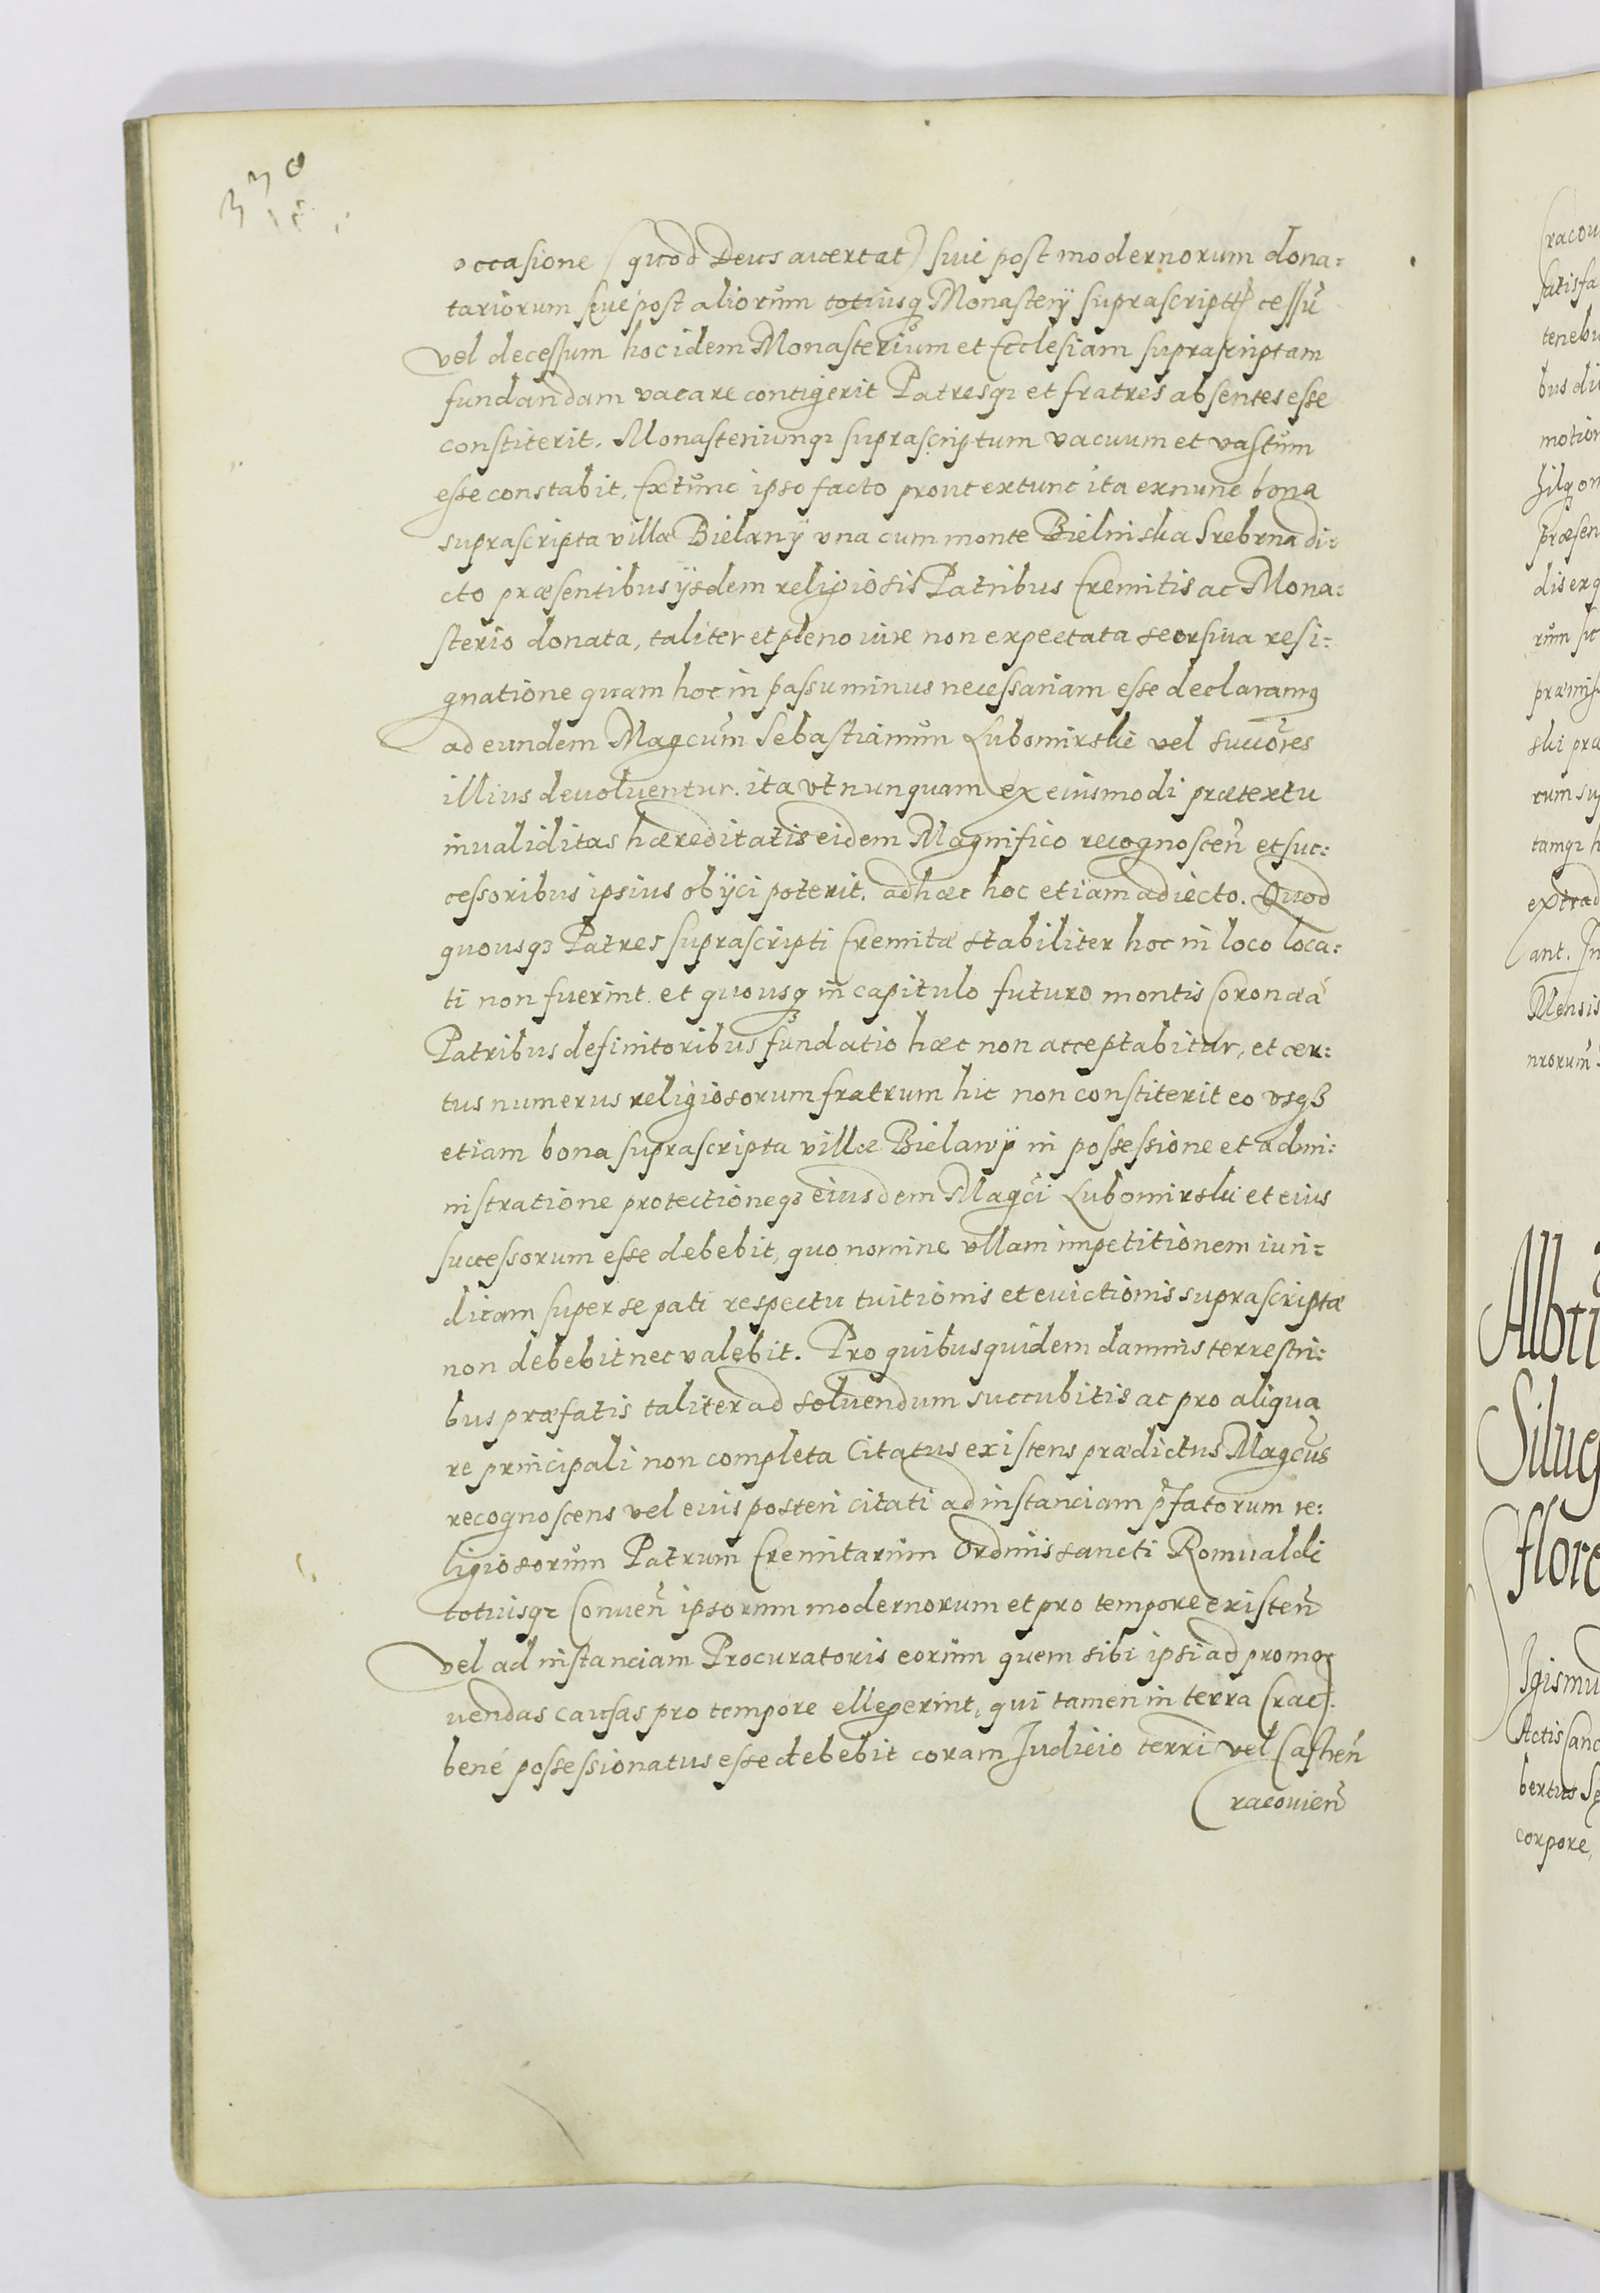 330
occasione (quod Deus auertat) siue post modernorum dona=
tariorum siue post aliorum totiusq Monasterÿ suprascriptt cessu
vel decessum hoc idem Monasterium et Ecclesiam suprascriptam
fundandam vacare contigerit Patresq et fratres absentes esse
constiterit. Monasteriumq suprascriptum vacuum et vastum
esse constabit, Extunc ipso facto prout extunc ita exnunc bona
suprascripta villæ Bielanÿ vna cum monte Bielniska Srebrna di=
cto præsentibus ÿsdem religiosis Patribus Eremitis ac Mona=
sterio donata, taliter et pleno iure non expectata seorsiua resi=
gnatione quam hoc in passu minus necessariam esse declaramq
ad eundem Magcum Sebastianum Lubomirski vel succores
illius deuoluentur. ita vt nunquam ex eiusmodi prætextu
inualiditas hæreditatis eidem Magnifico recognoscen et suc=
cessoribus ipsius obÿci poterit. adhæc hoc etiam adiecto. Quod
quousq Patres suprascripti Eremitæ stabiliter hoc in loco loca=
ti non fuerint et quousq in capitulo futuro montis Coronæ à
Patribus definitoribus fundatio hæc non acceptabitur, et cer=
tus numerus religiosorum fratrum hic non constiterit eo vsq
etiam bona suprascripta villæ Bielanÿ in possessione et admi=
nistratione protectioneq eiusdem Magci Lubomirski et eius
successorum esse debebit, quo nomine vllam impetitionem iuri=
dicam super se pati respectu tuitionis et euictionis suprascriptæ
non debebit nec valebit. Pro quibus quidem damnis terrestri=
bus præfatis taliter ad soluendum succubitis ac pro aliqua
re principali non completa Citatus existens prædictus Magcus
recognoscens vel eius posteri citati ad instanciam pfatorum re=
ligiosorum Patrum Eremitarum Ordinis sancti Romualdi
totiusq Conuen ipsorum modernorum et pro tempore existen
vel ad instanciam Procuratoris eorum quem sibi ipsi ad promo=
uendas causas pro tempore ellegerint, qui tamen in terra Crac.
bené possessionatus esse debebit coram Judicio terri vel Castren
Cracouien
Cracou
satisfa
tenebu
bus di
motion
præsen
dis erq
præmis
ski præ
rum su
tamq h
extrad
ant. In
Mensis
nrorum
Albti
Silueq
flore
Sigismu
Actis Canc
bertus Se
corpore,